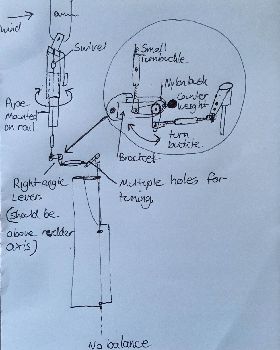 wind
Swivel
Small
Turnbuckle
Nylon bush
Counter
weight
Pipe
Mounted
on rail
turn
buckle
Bracket
Right-angle
Levers
(should be
above rudder
axis)
Multiple holes for
tuning
No balance